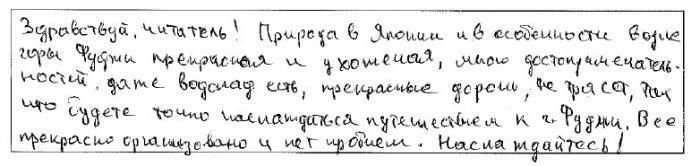 Здравствуй, читатель! Природа в Японии и в особенности возле
горы Фуджи прекрасная и ухоженая, много достопримечатель-
ностей, даже водопад есть, прекрасные дороги, не тряска, так
что будете точно наслаждаться путешествием к г. Фуджи. Все
прекрасно организовано и нет проблем. Наслаждайтесь!